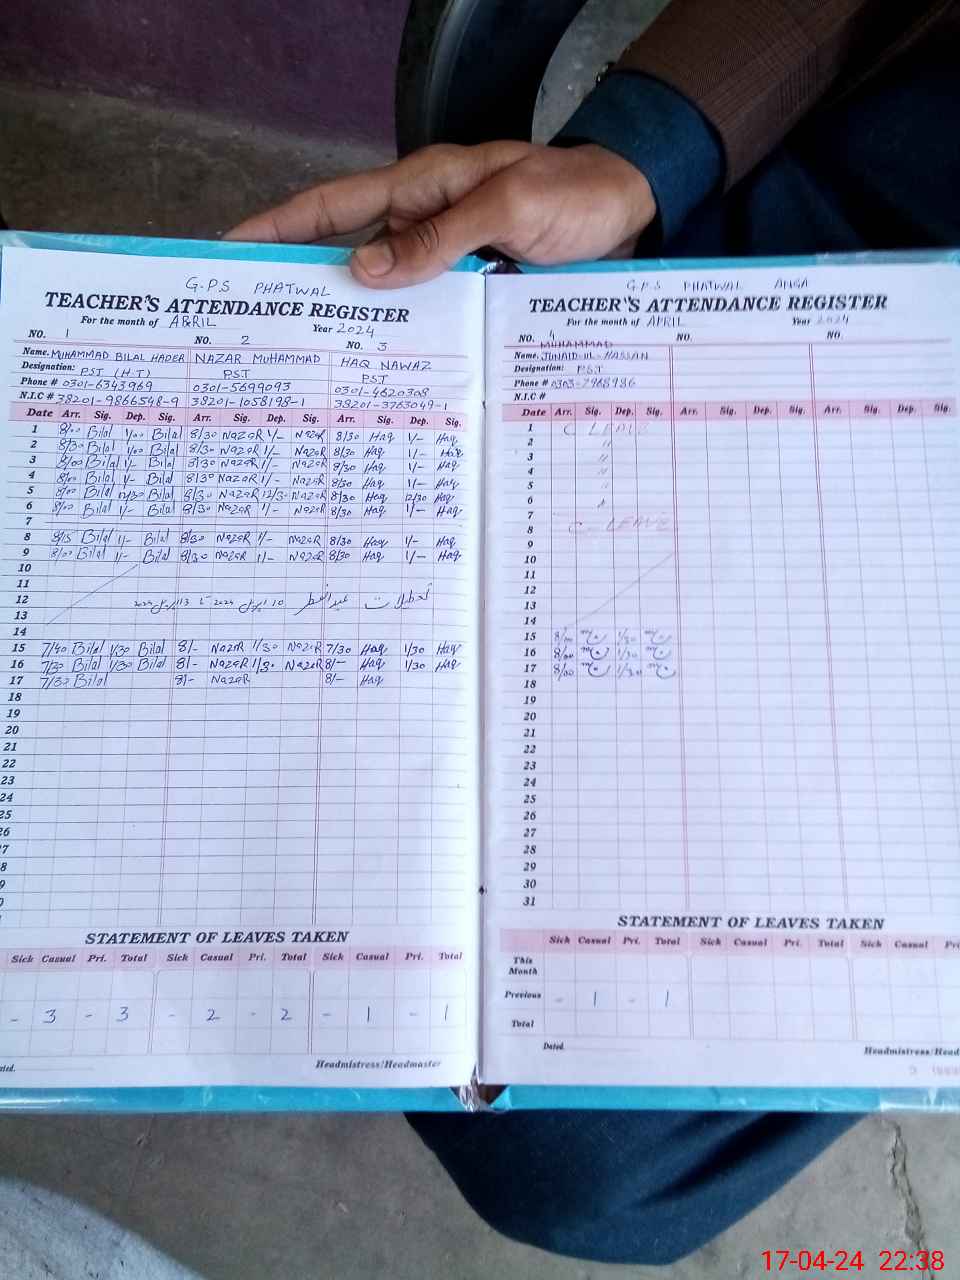 G.P.S PHATWAL
TEACHER'S ATTENDANCE REGISTER
For the month of APRIL Year 2024
NO. 1 NO. 2 NO. 3
Name. MUHAMMAD BILAL HADER NAZAR MUHAMMAD HAQ NAWAZ
Designation: PST (H.T) PST PST
Phone # 0301-6343969 0301-5699093 0301-4620308
N.I.C # 38201-9866548-9 38201-1058198-1 38201-3763049-1
Date Arr. Sig. Dep. Sig. Arr. Sig. Dep. Sig. Arr. Sig. Dep. Sig.
1 8/00 Bilal 1/00 Bilal 8/30 NazaR 1/- NazaR 8/30 Haq 1/- Haq
2 8/30 Bilal 1/00 Bilal 8/30 NazaR 1/- NazaR 8/30 Haq 1/- Haq
3 8/00 Bilal 1/- Bilal 8/30 NazaR 1/- NazaR 8/30 Haq 1/- Haq
4 8/00 Bilal 1/- Bilal 8/30 NazaR 1/- NazaR 8/30 Haq 1/- Haq
5 8/00 Bilal 12/30 Bilal 8/30 NazaR 12/30 NazaR 8/30 Haq 12/30 Haq
6 8/00 Bilal 1/- Bilal 8/30 NazaR 1/- NazaR 8/30 Haq 1/- Haq
7
8 8/15 Bilal 1/- Bilal 8/30 NazaR 1/- NazaR 8/30 Haq 1/- Haq
9 8/00 Bilal 1/- Bilal 8/30 NazaR 1/- NazaR 8/30 Haq 1/- Haq
10
11
12 تعطیلات عیدالفطر 10 اپریل 2024 تا 13 اپریل 2024
13
14
15 7/40 Bilal 1/30 Bilal 8/- NazaR 1/30 NazaR 7/30 Haq 1/30 Haq
16 7/30 Bilal 1/30 Bilal 8/- NazaR 1/30 NazaR 8/- Haq 1/30 Haq
17 7/30 Bilal 8/- NazaR 8/- Haq
18
19
20
21
22
23
24
25
26
7
8
9
STATEMENT OF LEAVES TAKEN
Sick Casual Pri. Total Sick Casual Pri. Total Sick Casual Pri. Total
- 3 - 3 - 2 - 2 - 1 - 1
Headmistress/Headmaster
G.P.S PHATWAL ANGA
TEACHER'S ATTENDANCE REGISTER
For the month of APRIL Year 2024
NO. 4 NO. NO.
MUHAMMAD
Name. JUNAID-UL-HASSAN
Designation: PST
Phone # 0303-7968986
N.I.C #
Date Arr. Sig. Dep. Sig. Arr. Sig. Dep. Sig. Arr. Sig. Dep. Sig.
1 C LEAVE
2 "
3 "
4 "
5 "
6 "
7
8 C-LEAVE
9
10
11
12
13
14
15 8/00 1/30
16 8/00 1/30
17 8/00 1/30
18
19
20
21
22
23
24
25
26
27
28
29
30
31
STATEMENT OF LEAVES TAKEN
Sick Casual Pri. Total Sick Casual Pri. Total Sick Casual Pri
This Month
Previous - 1 - 1
Total
Dated. Headmistress/Head
17-04-24 22:38